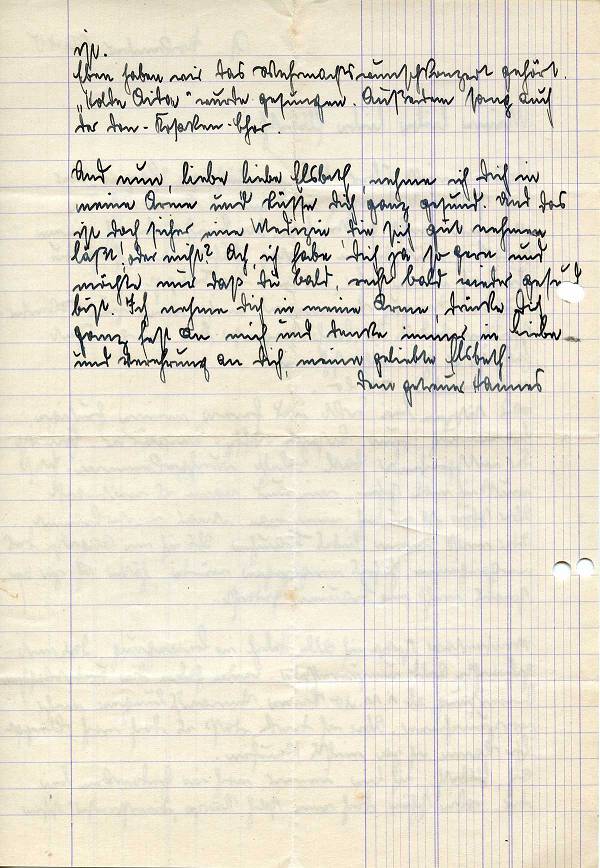 ist.
Eben haben wir das Wehrmachtswunschkonzert gehört.
"Holde Aida" wurde gesungen. Außerdem sang auch
der Don-Kosaken-Chor.
Und nun, liebe liebe Elsbeth, nehme ich Dich in
meine Arme und küsse Dich ganz gesund. Und das
ist doch sicher eine Medizin, die sich gut nehmen
läßt! oder nicht? Ach, ich habe Dich ja so gern und
möchte nur daß Du bald, recht bald wieder gesund
bist. Ich nehme Dich in meine Arme, drücke Dich
ganz fest an mich und denke immer in Liebe
und Verehrung an Dich, meine geliebte Elsbeth.
Dein getreuer Hannes